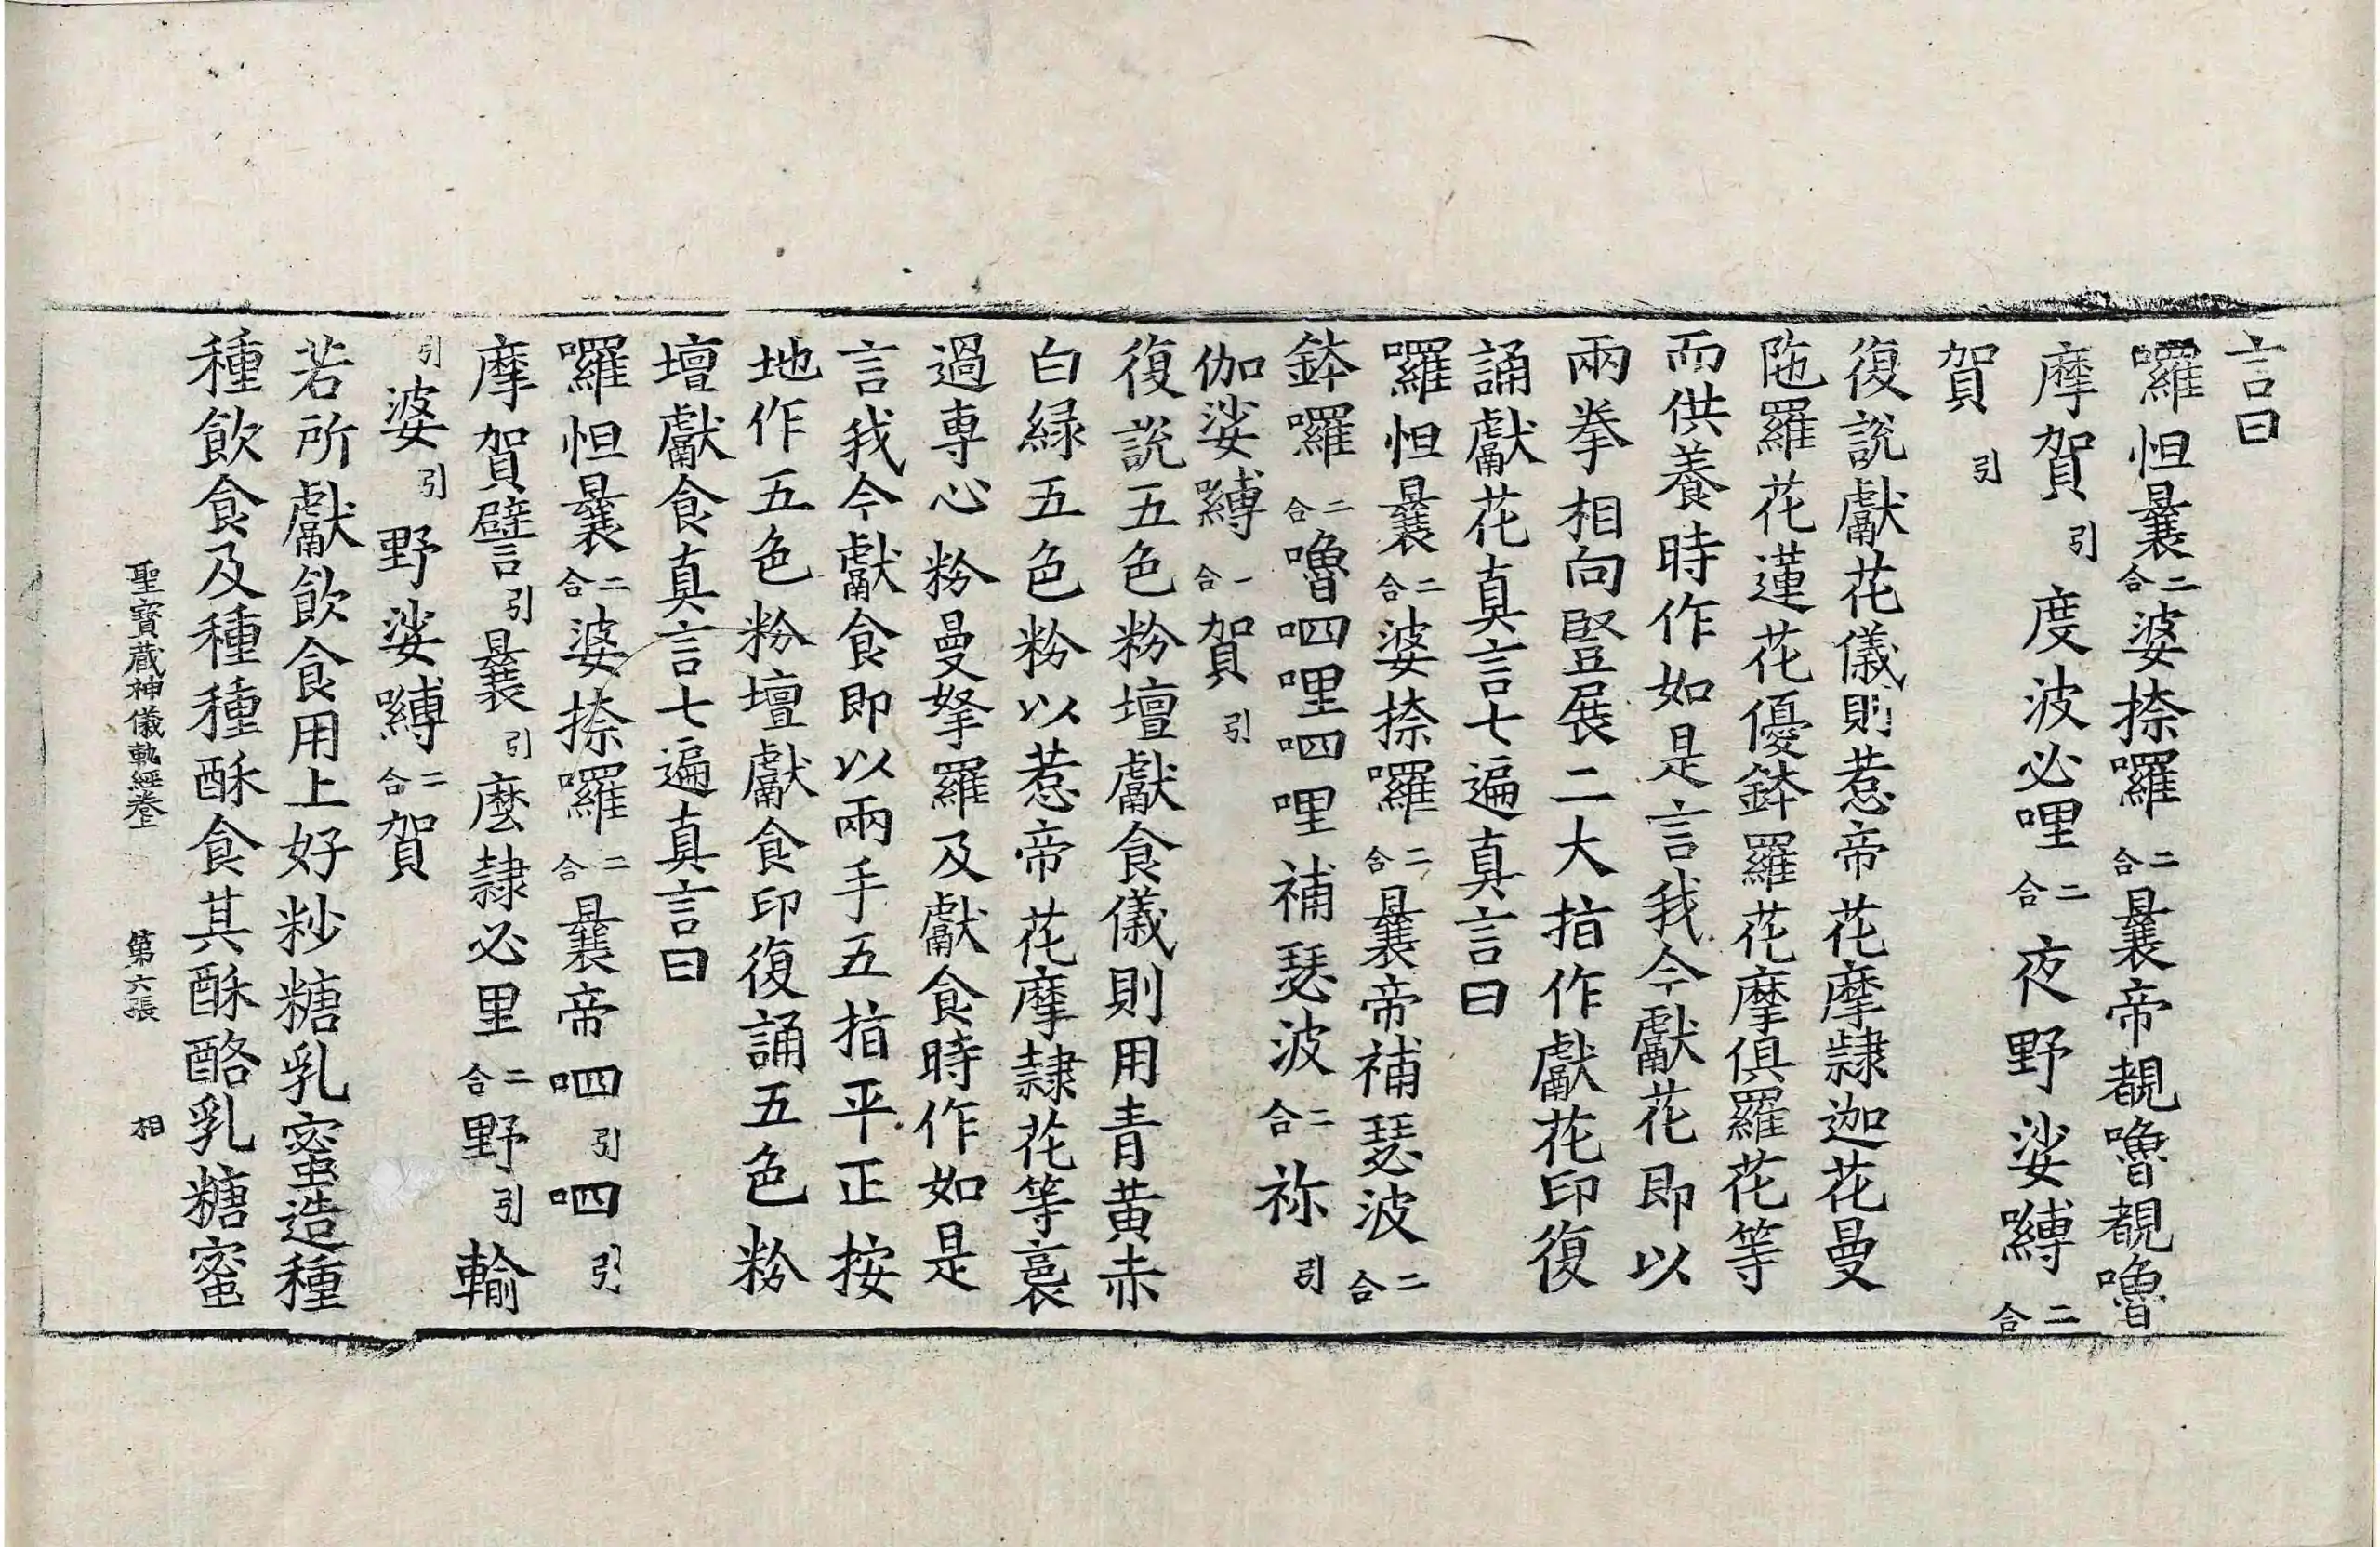 言曰
囉怛曩二合婆捺囉二合曩帝覩嚕覩嚕
摩賀引度波必哩二合夜野娑嚩二合
賀引
復說獻花儀則惹帝花摩隷迦花曼
陁羅花蓮花優鉢羅花摩俱羅花等
而供養時作如是言我今獻花即以
兩拳相向竪展二大指作獻花印復
誦獻花真言七遍真言曰
囉怛曩二合婆捺囉二合曩帝補瑟波二合
鉢囉二合嚕呬哩呬哩補瑟波二合祢引
伽娑嚩一合賀引
復說五色粉壇獻食儀則用青黃赤
白緑五色粉以惹帝花摩隷花等裛
過專心粉曼拏羅及獻食時作如是
言我今獻食即以兩手五指平正按
地作五色粉壇獻食印復誦五色粉
壇獻食真言七遍真言曰
囉怛曩二合婆捺囉二合曩帝呬引呬引
摩賀譬引曩引麽隷必里二合野引輸
引婆引野娑嚩二合賀
若所獻飲食用上好粆糖乳蜜造種
種飲食及種種酥食其酥酪乳糖蜜
聖寶藏神儀軌經卷上 第六張 相